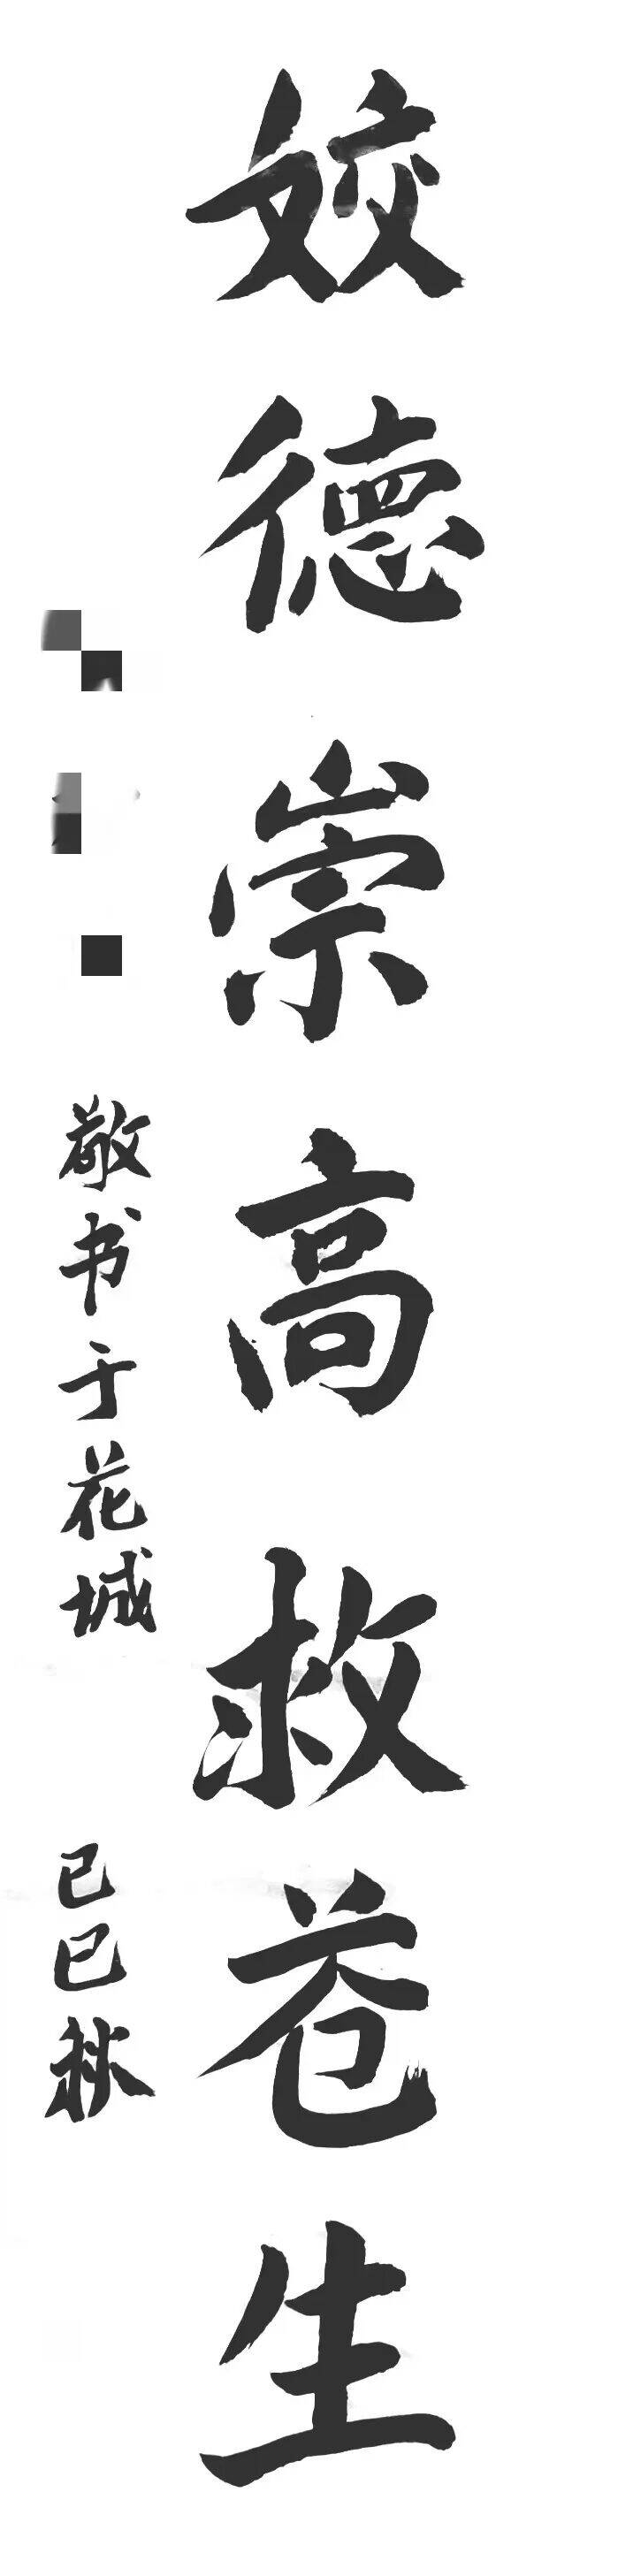 姣德崇高救苍生
敬书于花城
己巳秋